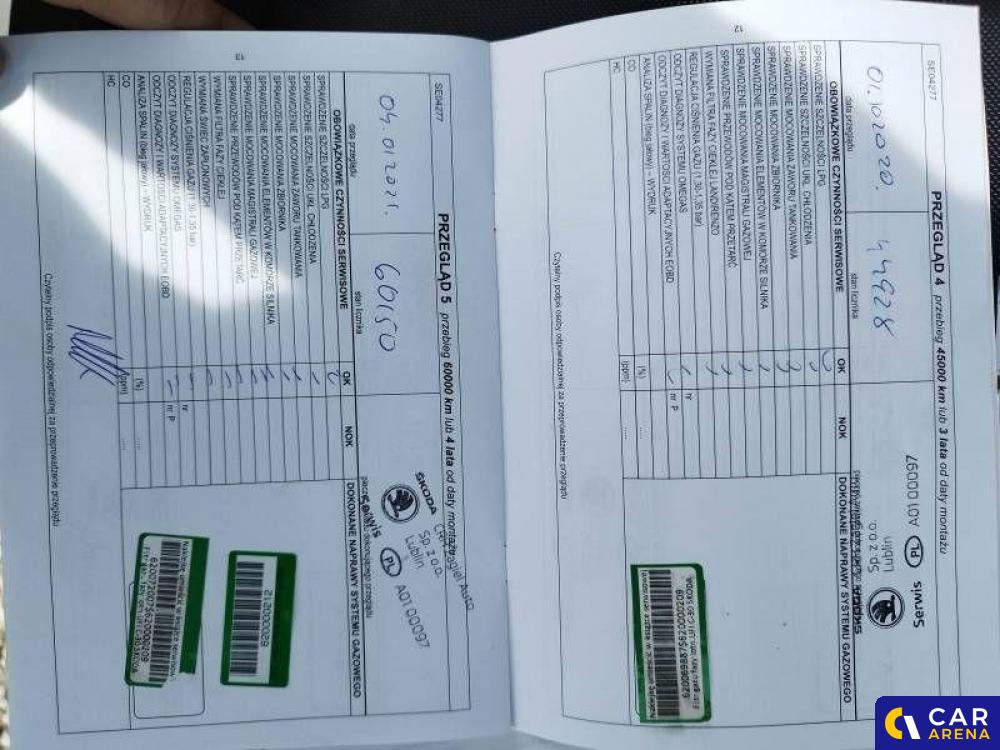 12
SE04277
PRZEGLĄD 4 przebieg 45000 km lub 3 lata od daty montażu
01.10.2020.
44928
data przeglądu
stan licznika
Serwis
PL
A0100097
Sp. z o.o.
Lublin
OBOWIĄZKOWE CZYNNOŚCI SERWISOWE
OK
NOK
DOKONANE NAPRAWY SYSTEMU GAZOWEGO
SPRAWDZENIE SZCZELNOŚCI LPG
SPRAWDZENIE SZCZELNOŚCI UKŁ. CHŁODZENIA
SPRAWDZENIE MOCOWANIA ZAWORU TANKOWANIA
SPRAWDZENIE MOCOWANIA ZBIORNIKA
SPRAWDZENIE MOCOWANIA ELEMENTÓW W KOMORZE SILNIKA
SPRAWDZENIE MOCOWANIA MAGISTRALI GAZOWEJ
SPRAWDZENIE PRZEWODÓW POD KĄTEM PRZETARĆ
WYMIANA FILTRA FAZY CIEKŁEJ LANDIRENZO
REGULACJA CIŚNIENIA GAZU (1,30-1,35 bar)
nr
ODCZYT DIAGNOZY SYSTEMU OMEGAS
nr P
ODCZYT DIAGNOZY I WARTOŚCI ADAPTACYJNYCH EOBD
ANALIZA SPALIN (bieg jałowy) – WYDRUK
CO
(%)
HC
(ppm)
Czytelny podpis osoby odpowiedzialnej za przeprowadzenie przeglądu
13
SE04277
PRZEGLĄD 5 przebieg 60000 km lub 4 lata od daty montażu
04.01.2021.
60150
data przeglądu
stan licznika
SKODA
Serwis
Sp. z o.o.
Lublin
PL
A0100097
OBOWIĄZKOWE CZYNNOŚCI SERWISOWE
OK
NOK
DOKONANE NAPRAWY SYSTEMU GAZOWEGO
SPRAWDZENIE SZCZELNOŚCI LPG
SPRAWDZENIE SZCZELNOŚCI UKŁ. CHŁODZENIA
SPRAWDZENIE MOCOWANIA ZAWORU TANKOWANIA
SPRAWDZENIE MOCOWANIA ZBIORNIKA
SPRAWDZENIE MOCOWANIA ELEMENTÓW W KOMORZE SILNIKA
SPRAWDZENIE MOCOWANIA MAGISTRALI GAZOWEJ
SPRAWDZENIE PRZEWODÓW POD KĄTEM PRZETARĆ
WYMIANA FILTRA FAZY CIEKŁEJ
WYMIANA ŚWIEC ZAPŁONOWYCH
REGULACJA CIŚNIENIA GAZU (1,30-1,35 bar)
nr
ODCZYT DIAGNOZY SYSTEMU OMEGAS
nr P
ODCZYT DIAGNOZY I WARTOŚCI ADAPTACYJNYCH EOBD
ANALIZA SPALIN (bieg jałowy) – WYDRUK
CO
(%)
HC
(ppm)
Czytelny podpis osoby odpowiedzialnej za przeprowadzenie przeglądu
CAR
ARENA